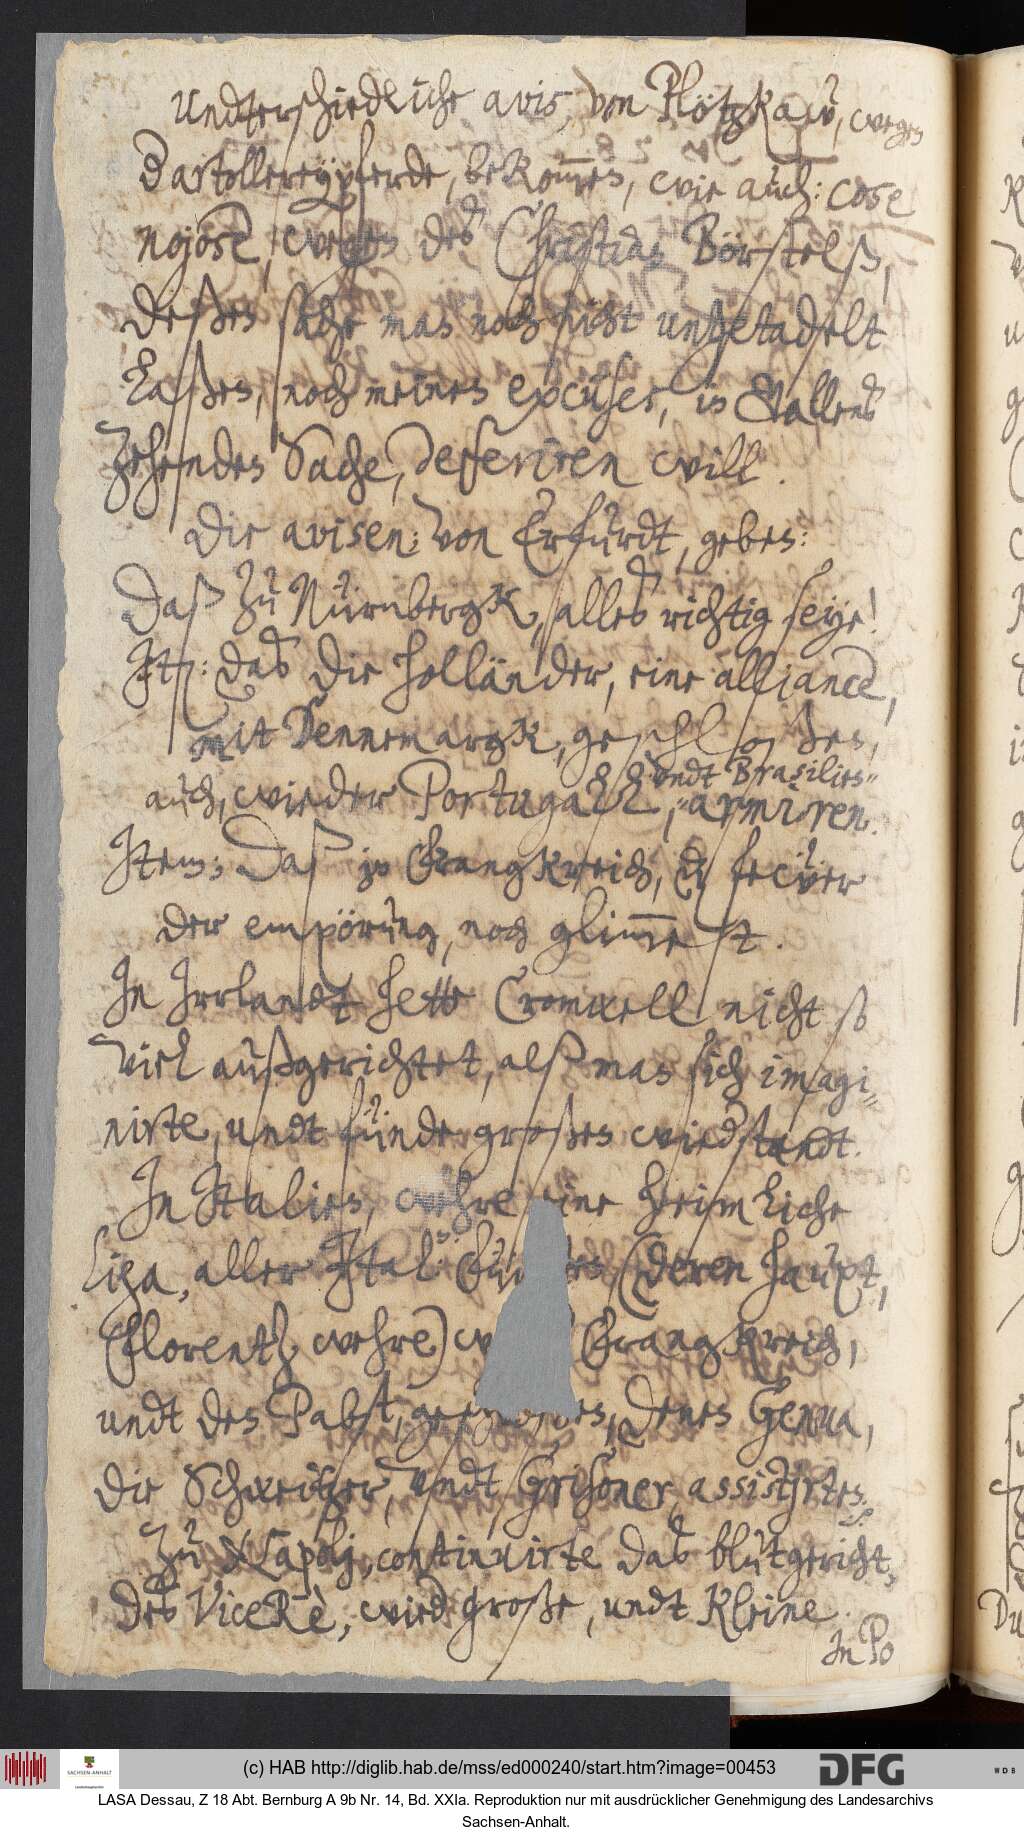 Undterschiedliche avis, von Plötzkaw, wegen
d'artollereypferde, bekommen, wie auch: cose
nojose, wegen des Christian Börstelß,
deßen sache man noch nicht ungetadelt
laßen, noch meinen excusen, in
Sache, defferiren will.
Die avisen: von Erfurdt, geben:
Daß zu Nürnbergk, alles richtig seye!
It: das die Holländer, eine alliance,
mit Dennemargk, geschloßen,
undt Brasilien
auch, wieder Portugall, armiren.
Item: Daß in Frangkreich, das fewer
der empörung, noch glimmet.
In Irrlandt hette Cromwell nicht so
viel außgerichtet, alß man sich imagi
nirte, undt fünde großen wiederstandt.
In Italien, wehre eine heimliche
Liga, aller Ital: (deren haupt,
Florentz wehre) Frangkreich,
undt den Pabst, denen Genua,
die Schweitzer, undt Grisoner, assistirten.
Zu Napoli, continuirte das blutgericht,
des ViceRè, wieder große, undt kleine.
In Po
(c) HAB http://diglib.hab.de/mss/ed000240/start.htm?image=00453
SACHSEN-ANHALT
DFG
WDB
LASA Dessau, Z 18 Abt. Bernburg A 9b Nr. 14, Bd. XXIa. Reproduktion nur mit ausdrücklicher Genehmigung des Landesarchivs
Sachsen-Anhalt.